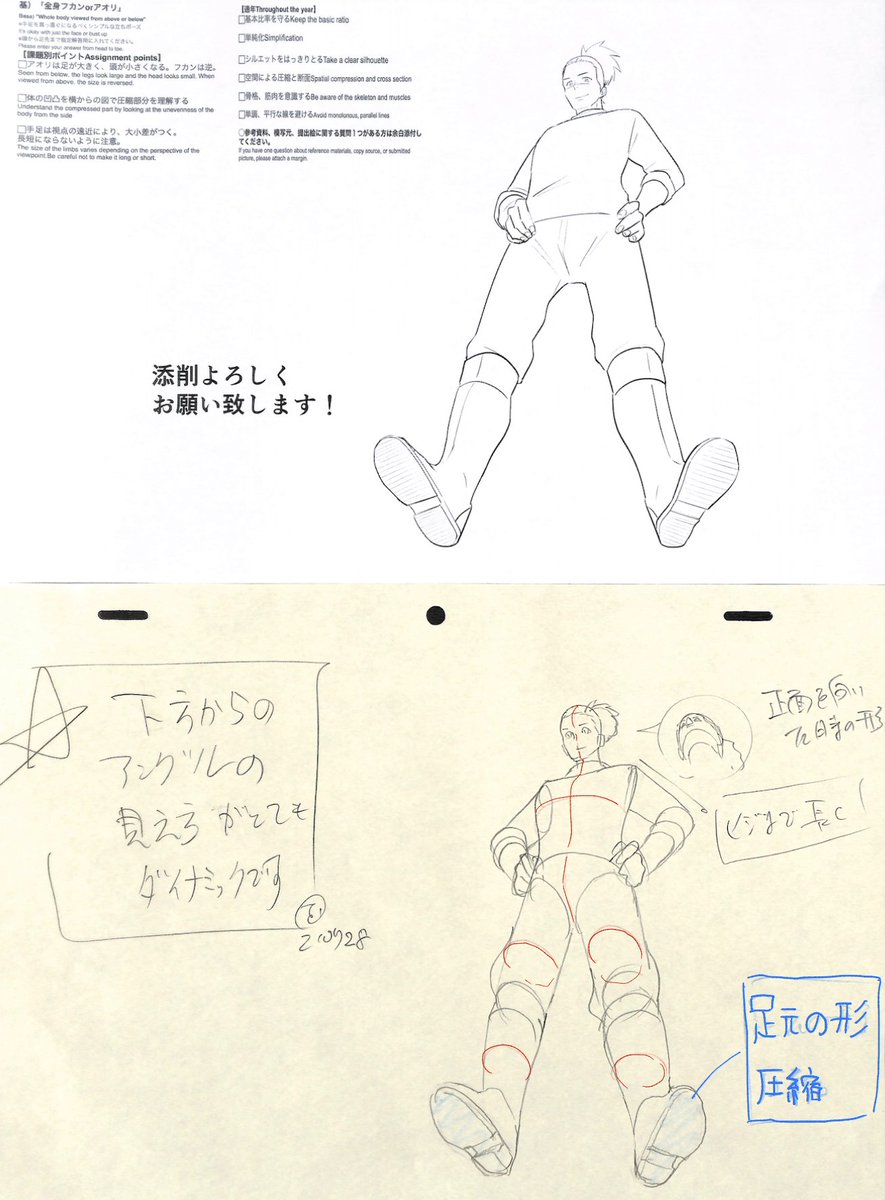 基)「全身フカンorアオリ」
Base) "Whole body viewed from above or below"
It's okay with just the face or bust up
Please enter your answer from head to toe.
【課題別ポイントAssignment points】
□アオリは足が大きく、頭が小さくなる。フカンは逆。
Seen from below, the legs look large and the head looks small. When
viewed from above, the size is reversed.
□体の凹凸を横からの図で圧縮部分を理解する
Understand the compressed part by looking at the unevenness of the
body from the side
□手足は視点の遠近により、大小差がつく。
長短にならないように注意。
The size of the limbs varies depending on the perspective of the
viewpoint.Be careful not to make it long or short.
【通年Throughout the year】
□基本比率を守るKeep the basic ratio
□単純化Simplification
□シルエットをはっきりとるTake a clear silhouette
□空間による圧縮と断面Spatial compression and cross section
□骨格、筋肉を意識するBe aware of the skeleton and muscles
□単調、平行な線を避けるAvoid monotonous, parallel lines
○参考資料、模写元、提出絵に関する質問1つがある方は余白添付し
てください。
If you have one question about reference materials, copy source, or submitted
picture, please attach a margin.
添削よろしく
お願い致します！
下方からの
アングルの
見え方がとても
ダイナミックです
正面を向い
た時の形
ヒジまで長く
足元の形
圧縮